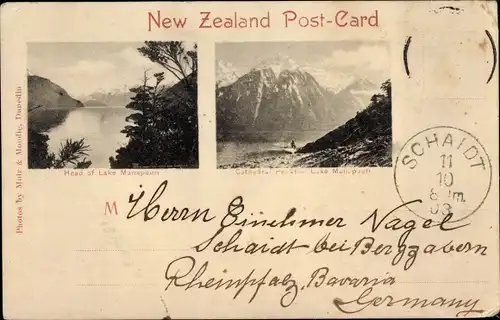 New Zealand Post-Card
Photos by Muir & Moodie, Dunedin
Head of Lake Manapouri
Cathedral Lake Manapouri
M
Herrn Einehmer Nagel
Schaidt bei Bergzabern
Rheinpfalz, Bavaria
Germany
SCHAIDT
11
10
8
03